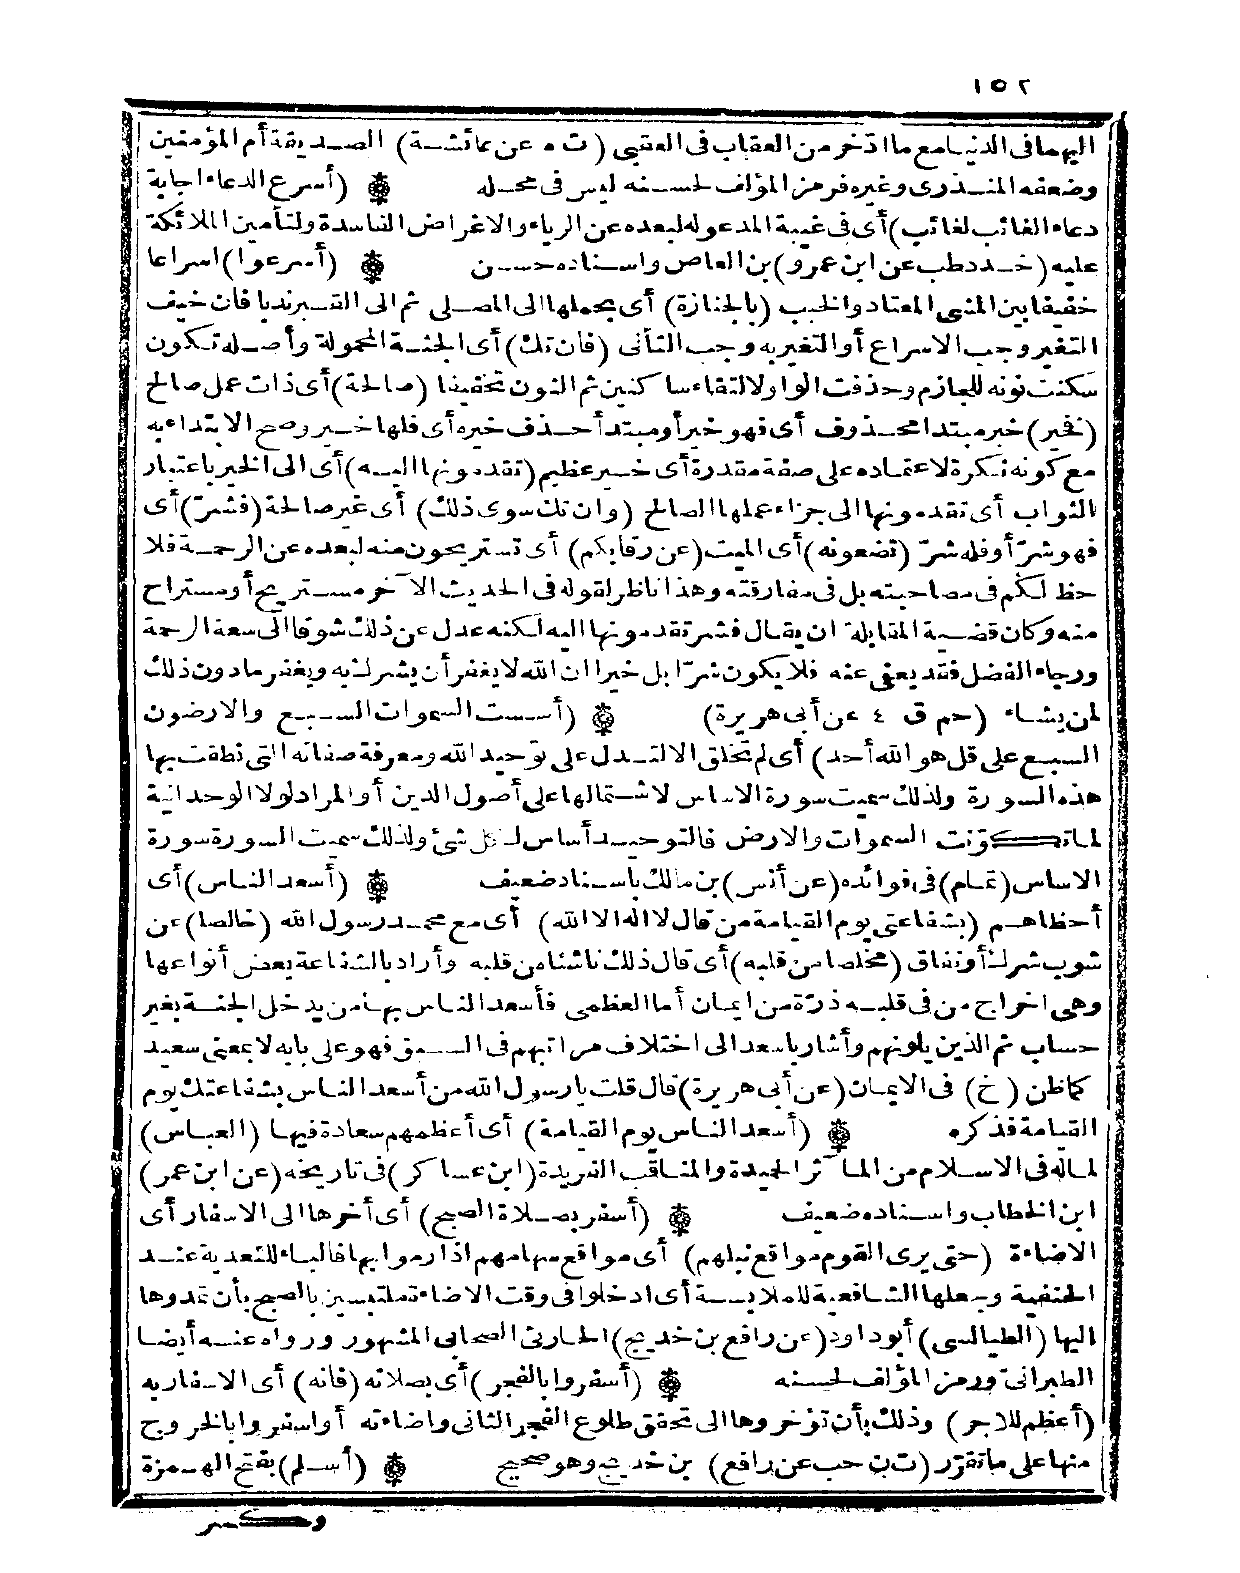 ١٥٢
اليهما فى الدنيا مع ما ادّخر من العقاب فى العقبى (ت ه عن عائشة) الصديقة أم المؤمنين
وضعفه المنذرى وغيره فرمز المؤلف لحسنه ليس فى محله ۞ (أسرع الدعاء اجابة
دعاء الغائب لغائب) أى فى غيبة المدعو له لبعده عن الرياء والاغراض الفاسدة ولتأمين الملائكة
عليه (خد د طب عن ابن عمرو) بن العاص واسناده حسن ۞ (أسرعوا) اسراعا
خفيفا بين المشى المعتاد والخبب (بالجنازة) أى بحملها الى المصلى ثم الى القبر ندبا فان خيف
التغير وجب الاسراع أو التغير به وجب التأنى (فان تك) أى الجثة المحمولة وأصله تكون
سكنت نونه للجازم وحذفت الواو لالتقاء ساكنين ثم النون تخفيفا (صالحة) أى ذات عمل صالح
(فخير) خبر مبتدا محذوف أى فهو خير أو مبتدأ حذف خبره أى فلها خير وصح الابتداء به
مع كونه نكرة لاعتماده على صفة مقدرة أى خير عظيم (تقدمونها اليه) أى الى الخير باعتبار
الثواب أى تقدمونها الى جزاء عملها الصالح (وان تك سوى ذلك) أى غير صالحة (فشرّ) أى
فهو شرّ أو فله شرّ (تضعونه) أى الميت (عن رقابكم) أى تستريحون منه لبعده عن الرحمة فلا
حظ لكم فى مصاحبته بل فى مفارقته وهذا ناظر لقوله فى الحديث الآخر مستريح أو مستراح
منه وكان قضية المقابلة ان يقال فشر تقدمونها اليه لكنه عدل عن ذلك شوقا الى سعة الرحمة
ورجاء الفضل فقد يعفى عنه فلا يكون شرّا بل خيرا ان الله لا يغفر أن يشرك به ويغفر ما دون ذلك
لمن يشاء (حم ق ٤ عن أبى هريرة) ۞ (أسست السموات السبع والارضون
السبع على قل هو الله أحد) أى لم تخلق الا لتدل على توحيد الله ومعرفة صفاته التى نطقت بها
هذه السورة ولذلك سميت سورة الاساس لاشتمالها على أصول الدين أو المراد لولا الوحدانية
لما تكوّنت السموات والارض فالتوحيد أساس لكل شئ ولذلك سميت السورة سورة
الاساس (تمام) فى فوائده (عن أنس) بن مالك باسناد ضعيف ۞ (أسعد الناس) أى
أحظاهم (بشفاعتى يوم القيامة من قال لا اله الا الله) أى مع محمد رسول الله (خالصا) عن
شوب شرك أو نفاق (مخلصا من قلبه) أى قال ذلك ناشئا من قلبه وأراد بالشفاعة بعض أنواعها
وهى اخراج من فى قلبه ذرّة من ايمان أما العظمى فأسعد الناس بها من يدخل الجنة بغير
حساب ثم الذين يلونهم وأشار بأسعد الى اختلاف مراتبهم فى السبق فهو على بابه لا بمعنى سعيد
كما ظن (خ) فى الايمان (عن أبى هريرة) قال قلت يا رسول الله من أسعد الناس بشفاعتك يوم
القيامة فذكره ۞ (أسعد الناس يوم القيامة) أى أعظمهم سعادة فيها (العباس)
لما له فى الاسلام من المآثر الحميدة والمناقب الفريدة (ابن عساكر) فى تاريخه (عن ابن عمر)
ابن الخطاب واسناده ضعيف ۞ (أسفر بصلاة الصبح) أى أخرها الى الاسفار أى
الاضاءة (حتى يرى القوم مواقع نبلهم) أى مواقع سهامهم اذا رموا بها فالباء للتعدية عند
الحنفية وجعلها الشافعية للملابسة أى ادخلوا فى وقت الاضاءة ملتبسين بالصبح بأن تمدوها
اليها (الطيالسى) أبو داود (عن رافع بن خديج) الحارثى الصحابى المشهور ورواه عنه أيضا
الطبرانى ورمز المؤلف لحسنه ۞ (أسفروا بالفجر) أى بصلاته (فانه) أى الاسفار به
(أعظم للاجر) وذلك بأن تؤخروها الى تحقق طلوع الفجر الثانى واضاءته أو اسفروا بالخروج
منها على ما تقرّر (ت ن حب عن رافع) بن خديج وهو صحيح ۞ (أسلم) بفتح الهمزة
وكسر